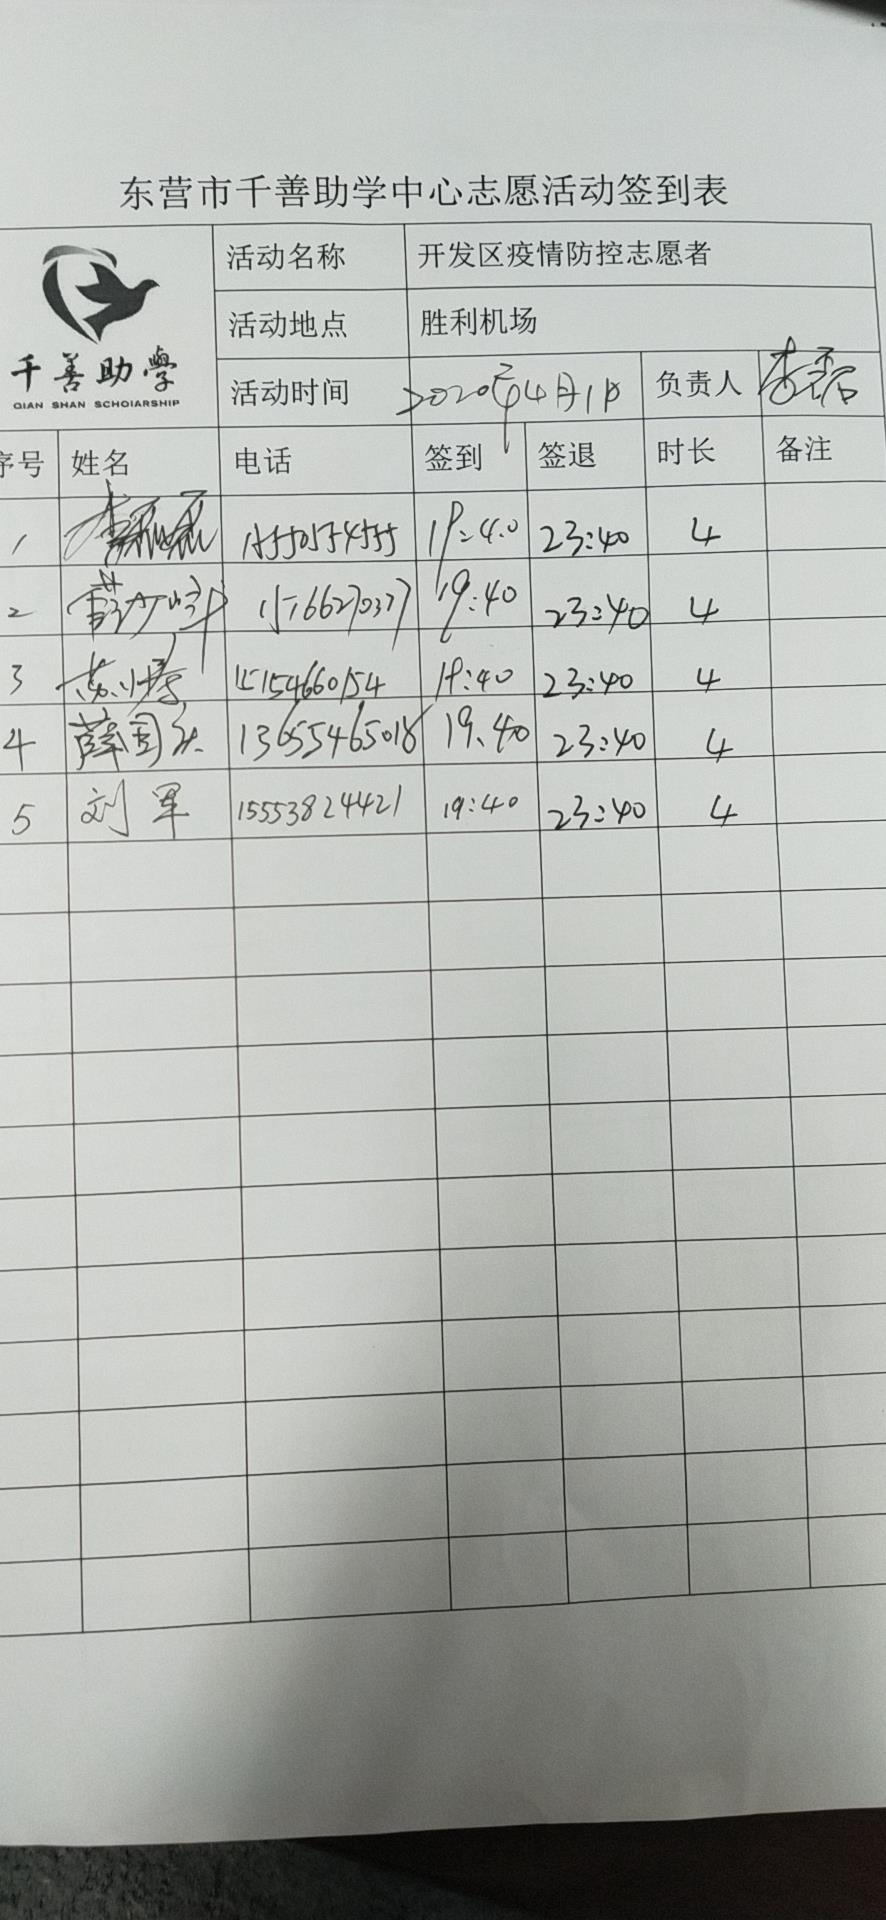 东营市千善助学中心志愿活动签到表
千善助學
QIAN SHAN SCHOlARSHIP
活动名称 开发区疫情防控志愿者
活动地点 胜利机场
活动时间 2020年4月1日 负责人
序号 姓名 电话 签到 签退 时长 备注
1 15550545555 19:40 23:40 4
2 19:40 23:40 4
3 15154660154 19:40 23:40 4
4 薛国 13655465018 19.40 23:40 4
5 刘军 15553824421 19:40 23:40 4